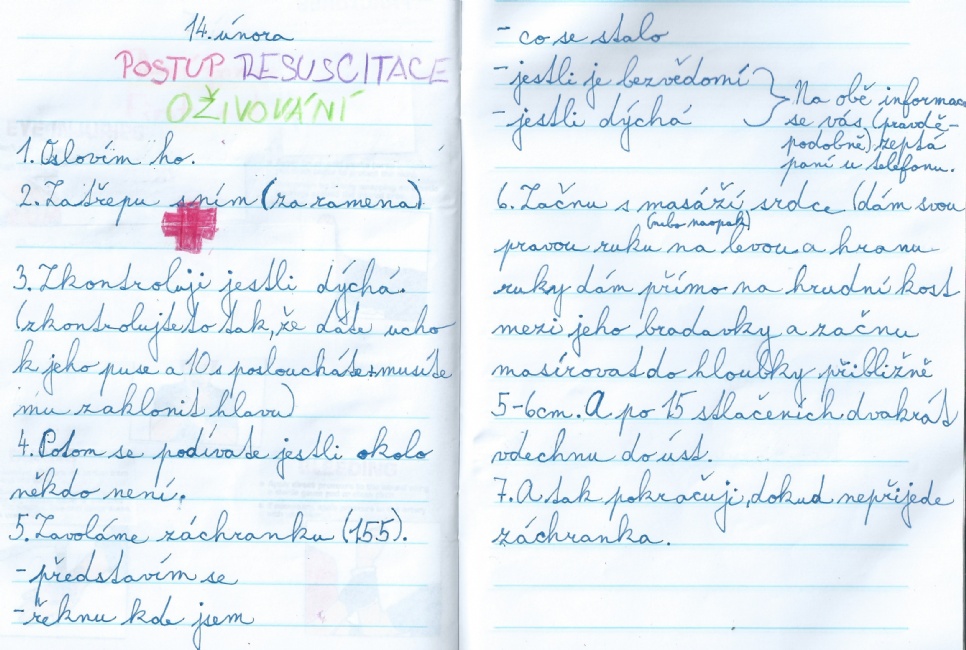 14. února
POSTUP RESUSCITACE
OŽIVOVÁNÍ
1. Oslovím ho.
2. Zatřepu s ním (za ramena)
3. Zkontroluji jestli dýchá.
(zkontrolujte to tak, že dáte ucho
k jeho puse a 10 s posloucháte + musíte
mu zaklonit hlavu)
4. Potom se podívate jestli okolo
někdo není.
5. Zavoláme záchranku (155).
- představím se
- řeknu kde jsem
- co se stalo
- jestli je bezvědomí
- jestli dýchá
Na obě informac
se vás (pravdě-
podobně) zeptá
paní u telefonu.
6. Začnu s masáží srdce (dám svou
(nebo naopak)
pravou ruku na levou a hranu
ruky dám přímo na hrudní kost
mezi jeho bradavky a začnu
masírovat do hloubky přibližně
5-6cm. A po 15 stlačeních dvakrát
vdechnu do úst.
7. A tak pokračuji, dokud nepřijede
záchranka.